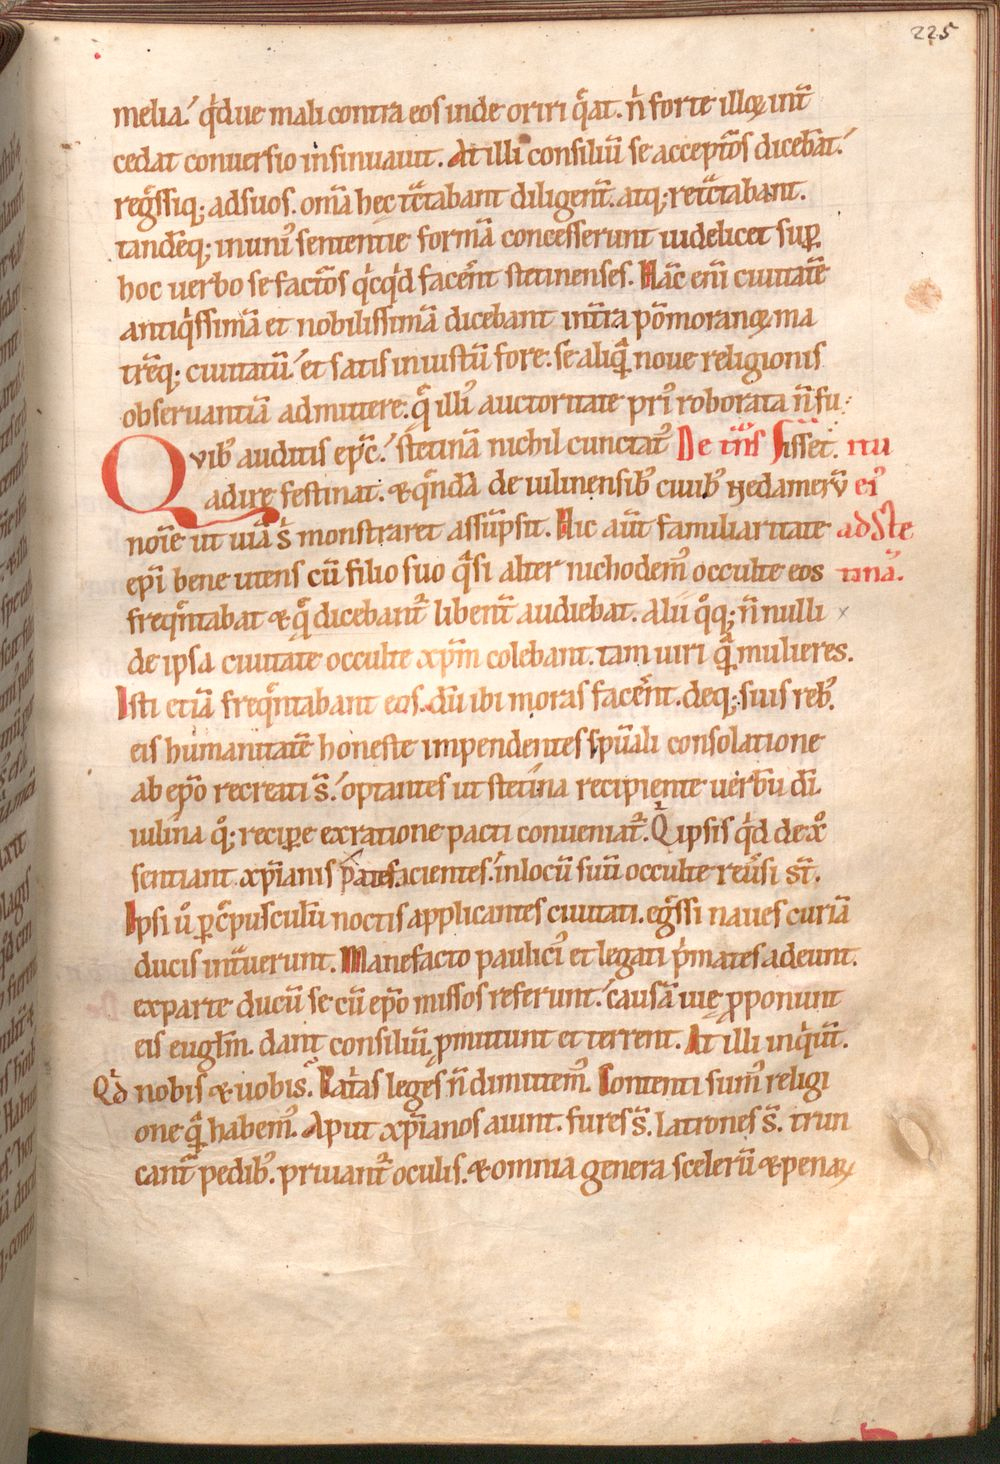 225
melia. q̇due mali contra eos inde oriri q̄at. n̄ forte illoꝝ int̄
cedat conuersio insinuauit. At illi consiliū se acceptōs diceb̄at.
reg̃ssiq; ad suos. om̄a hec tc̄tabant diligent̄. atq; ret̄ctabant.
tandēq; in unī sententie formā concesserunt uidelicet sup̲
hoc uerbo se factōs qicq̇d facerēt stetinenses. Hāc eni ciuitatē
antiq̇ssimā et nobilissimā dicebant intra pōmoranoꝝ ma
trēq; ciuitatū. et satis iniustū fore. se aliq̄ noue religionis
obseruantiā admittere. q̄ illi᷒ auctoritate pri᷒ roborata n̄ fu
Qvib᷒ auditis ep̄c. stetinā nichil cunctat᷒ De tn̄s fisset. itu
adire festinat. & qͣndā de iulinensib᷒ ciuib᷒ nedamerū ei᷒
noīe ut uiā s̄ monstraret assūpsit. Hic aūt familiaritate ad Ste
ep̄i bene utens cū filio suo qͣsi alter nichodem᷒ occulte eos tinā.
freqͣntabat & q̄ dicebant᷑ libent̄ audiebat. Alii q̊q; n̄ nulli
de ipsa ciuitate occulte xp̄m colebant. tam uiri q̄ mulieres.
Isti etiā freqͣntabant eos. dū ibi moras facer̄ent. deq; suis reb᷒
eis humanitatē honeste impendentes spūali consolatione
ab ep̄o recreati s̄. optantes ut stetina recipiente uerbū dī.
iulina q̊; recip̲e ex ratione pacti conueniat᷑. Q̇ ipsis q̇d de xͦ
sentiant xp̄ianis patefacientes. in locū suū occulte reūsi st̄.
Ipsi ů p̲ c̄pusculū noctis applicantes ciuitati. eg̃ssi naues curiā
ducis int̄uerunt. Mane facto paulici᷒ et legati ṗmates adeunt.
ex parte ducū se cū ep̄o missos referunt. causā uię p̲ponunt
eis eugl̄m. dant consiliū. p̲mittunt et terrent. At illi inq̇ūt.
Q̇d nobis & uobis. Pat̄as leges n̄ dimittem᷒. Contenti sum᷒ religi
one q̄ habem᷒. Aput xp̄ianos aiunt. fures s̄. latrones s̄. trun
cant᷑ pedib᷒. priuant᷑ oculis. & omnia genera scelerū & penaꝝ